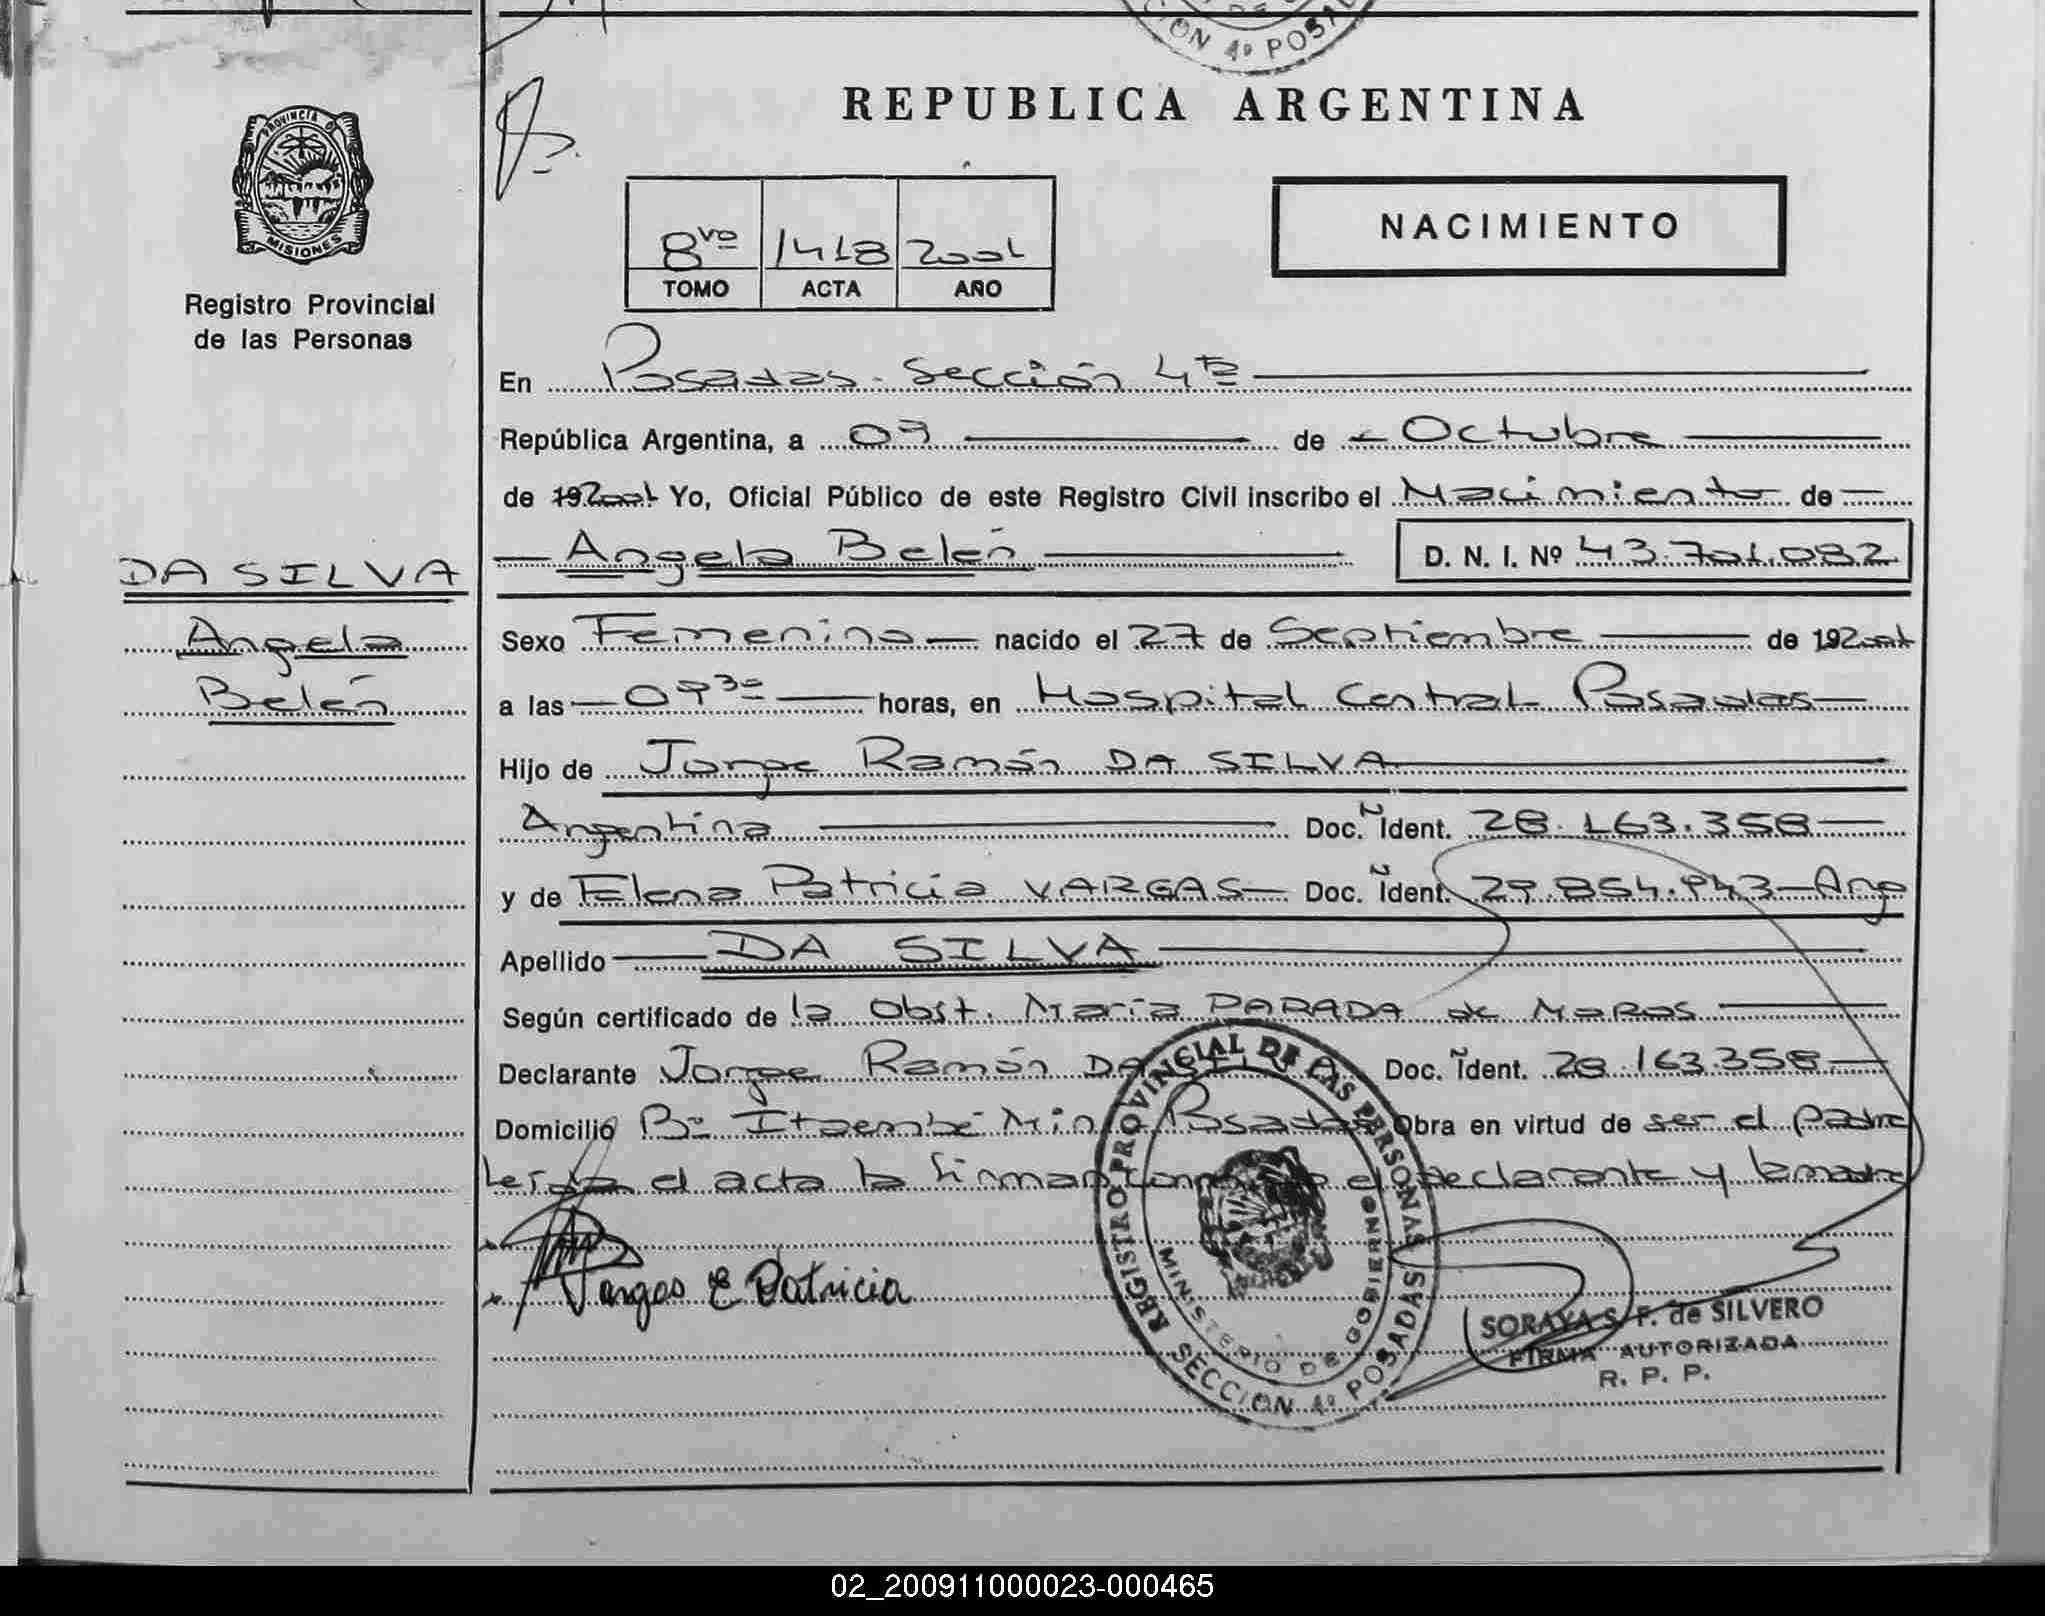 CION 4º POSA
REPUBLICA ARGENTINA
PROVINCIA DE
MISIONES
Registro Provincial
de las Personas
8vo 1418 2001
TOMO ACTA AÑO
NACIMIENTO
En Posadas. Sección 4ta
República Argentina, a 03 de Octubre
de 192001 Yo, Oficial Público de este Registro Civil inscribo el Nacimiento de
Angela Belén D. N. I. Nº 43.701.082
DA SILVA
Angela
Belén
Sexo Femenino nacido el 27 de Septiembre de 192001
a las 09 30 horas, en Hospital Central Posadas
Hijo de Jorge Ramón DA SILVA
Argentina Doc. Ident. 28.163.358
y de Elena Patricia VARGAS Doc. Ident. 29.854.943 Arg
Apellido DA SILVA
Según certificado de la Obst. María PARADA de MOROS
Declarante Jorge Ramón DA Doc. Ident. 28.163.358
Domicilio Bº Itaembé Miní Posadas Obra en virtud de ser el padre
Leída el acta la firman conmigo el declarante y la madre
Vargas E Patricia
REGISTRO PROVINCIAL DE LAS PERSONAS
MINISTERIO DE GOBIERNO
SECCION 4º POSADAS
SORAYA S. F. de SILVERO
FIRMA AUTORIZADA
R. P. P.
02_200911000023-000465